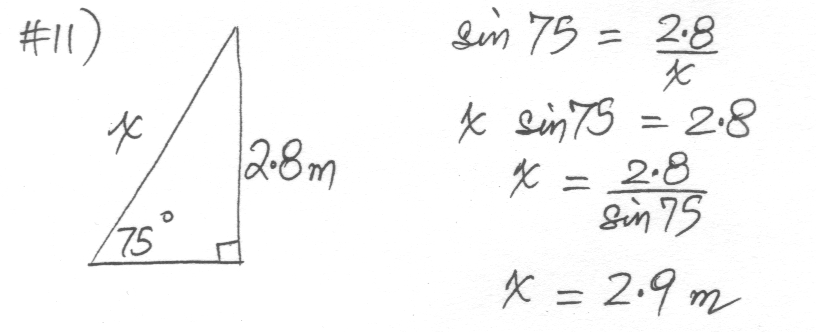 #11)
x
2.8m
75°
sin 75 = 2.8/x
x sin75 = 2.8
x = 2.8/sin 75
x = 2.9 m